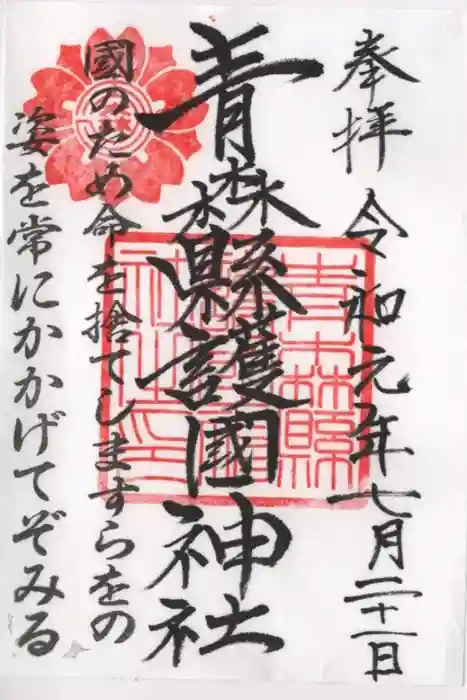 奉拝
令和元年七月二十一日
青森縣護國神社
國のため命を捨てしますらをの
姿を常にかかげてぞみる
青森縣
護國神
社之印